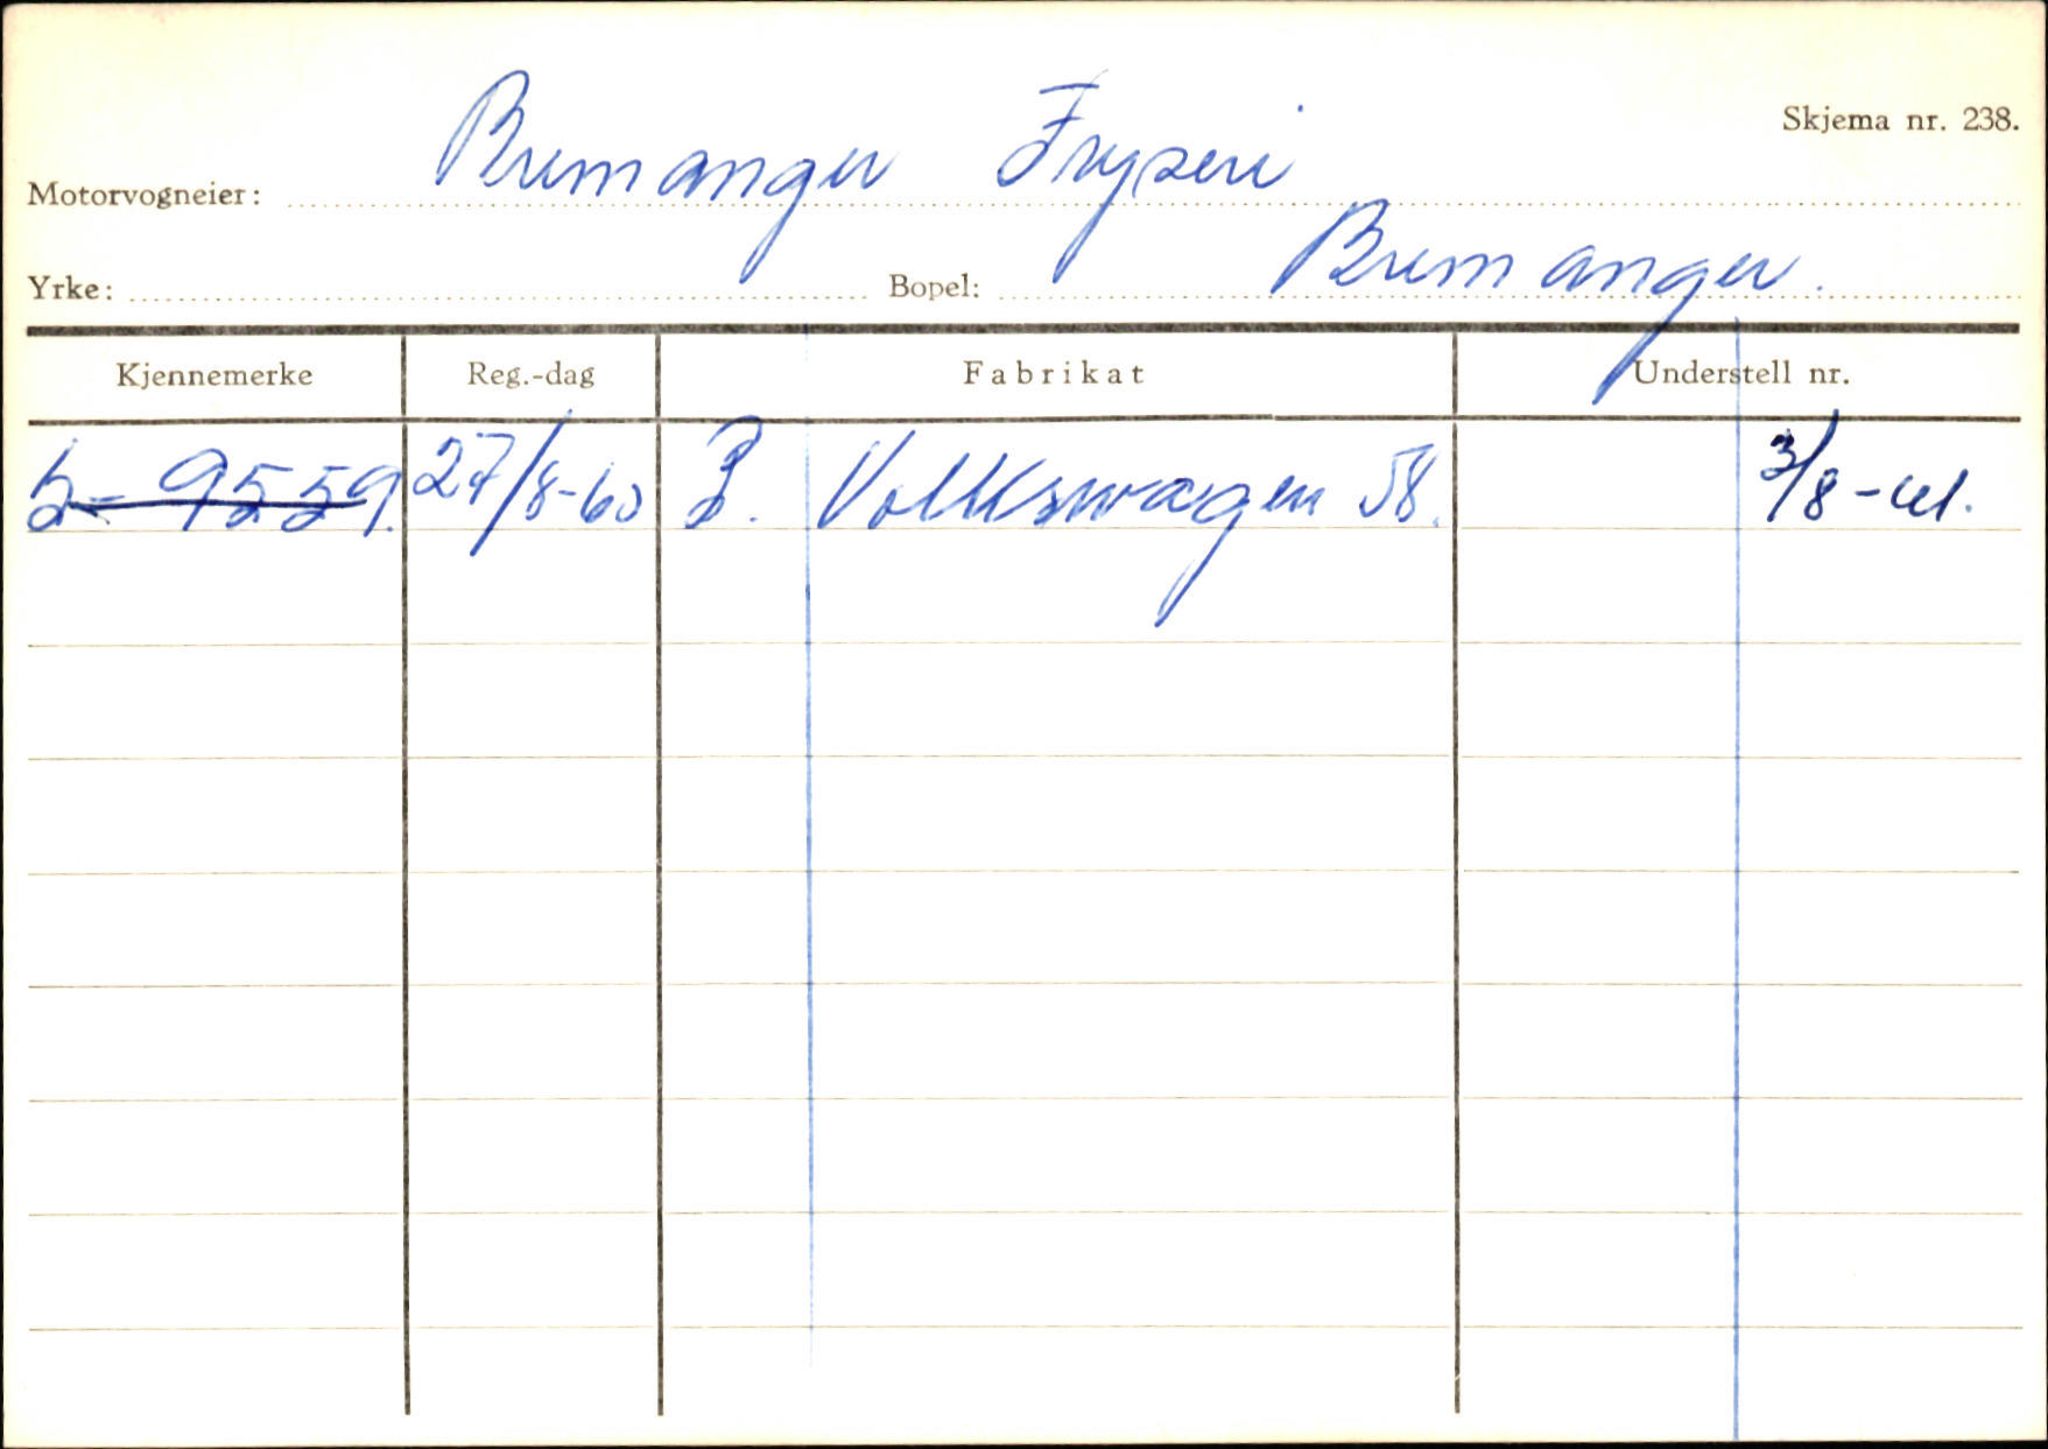 Skjema nr. 238.
Motorvogneier: Bremanger Fryseri
Yrke: Bopel: Bremanger.
Kjennemerke Reg.-dag Fabrikat Understell nr.
9559. 27/8-60 Volkswagen 58. 3/8-61.